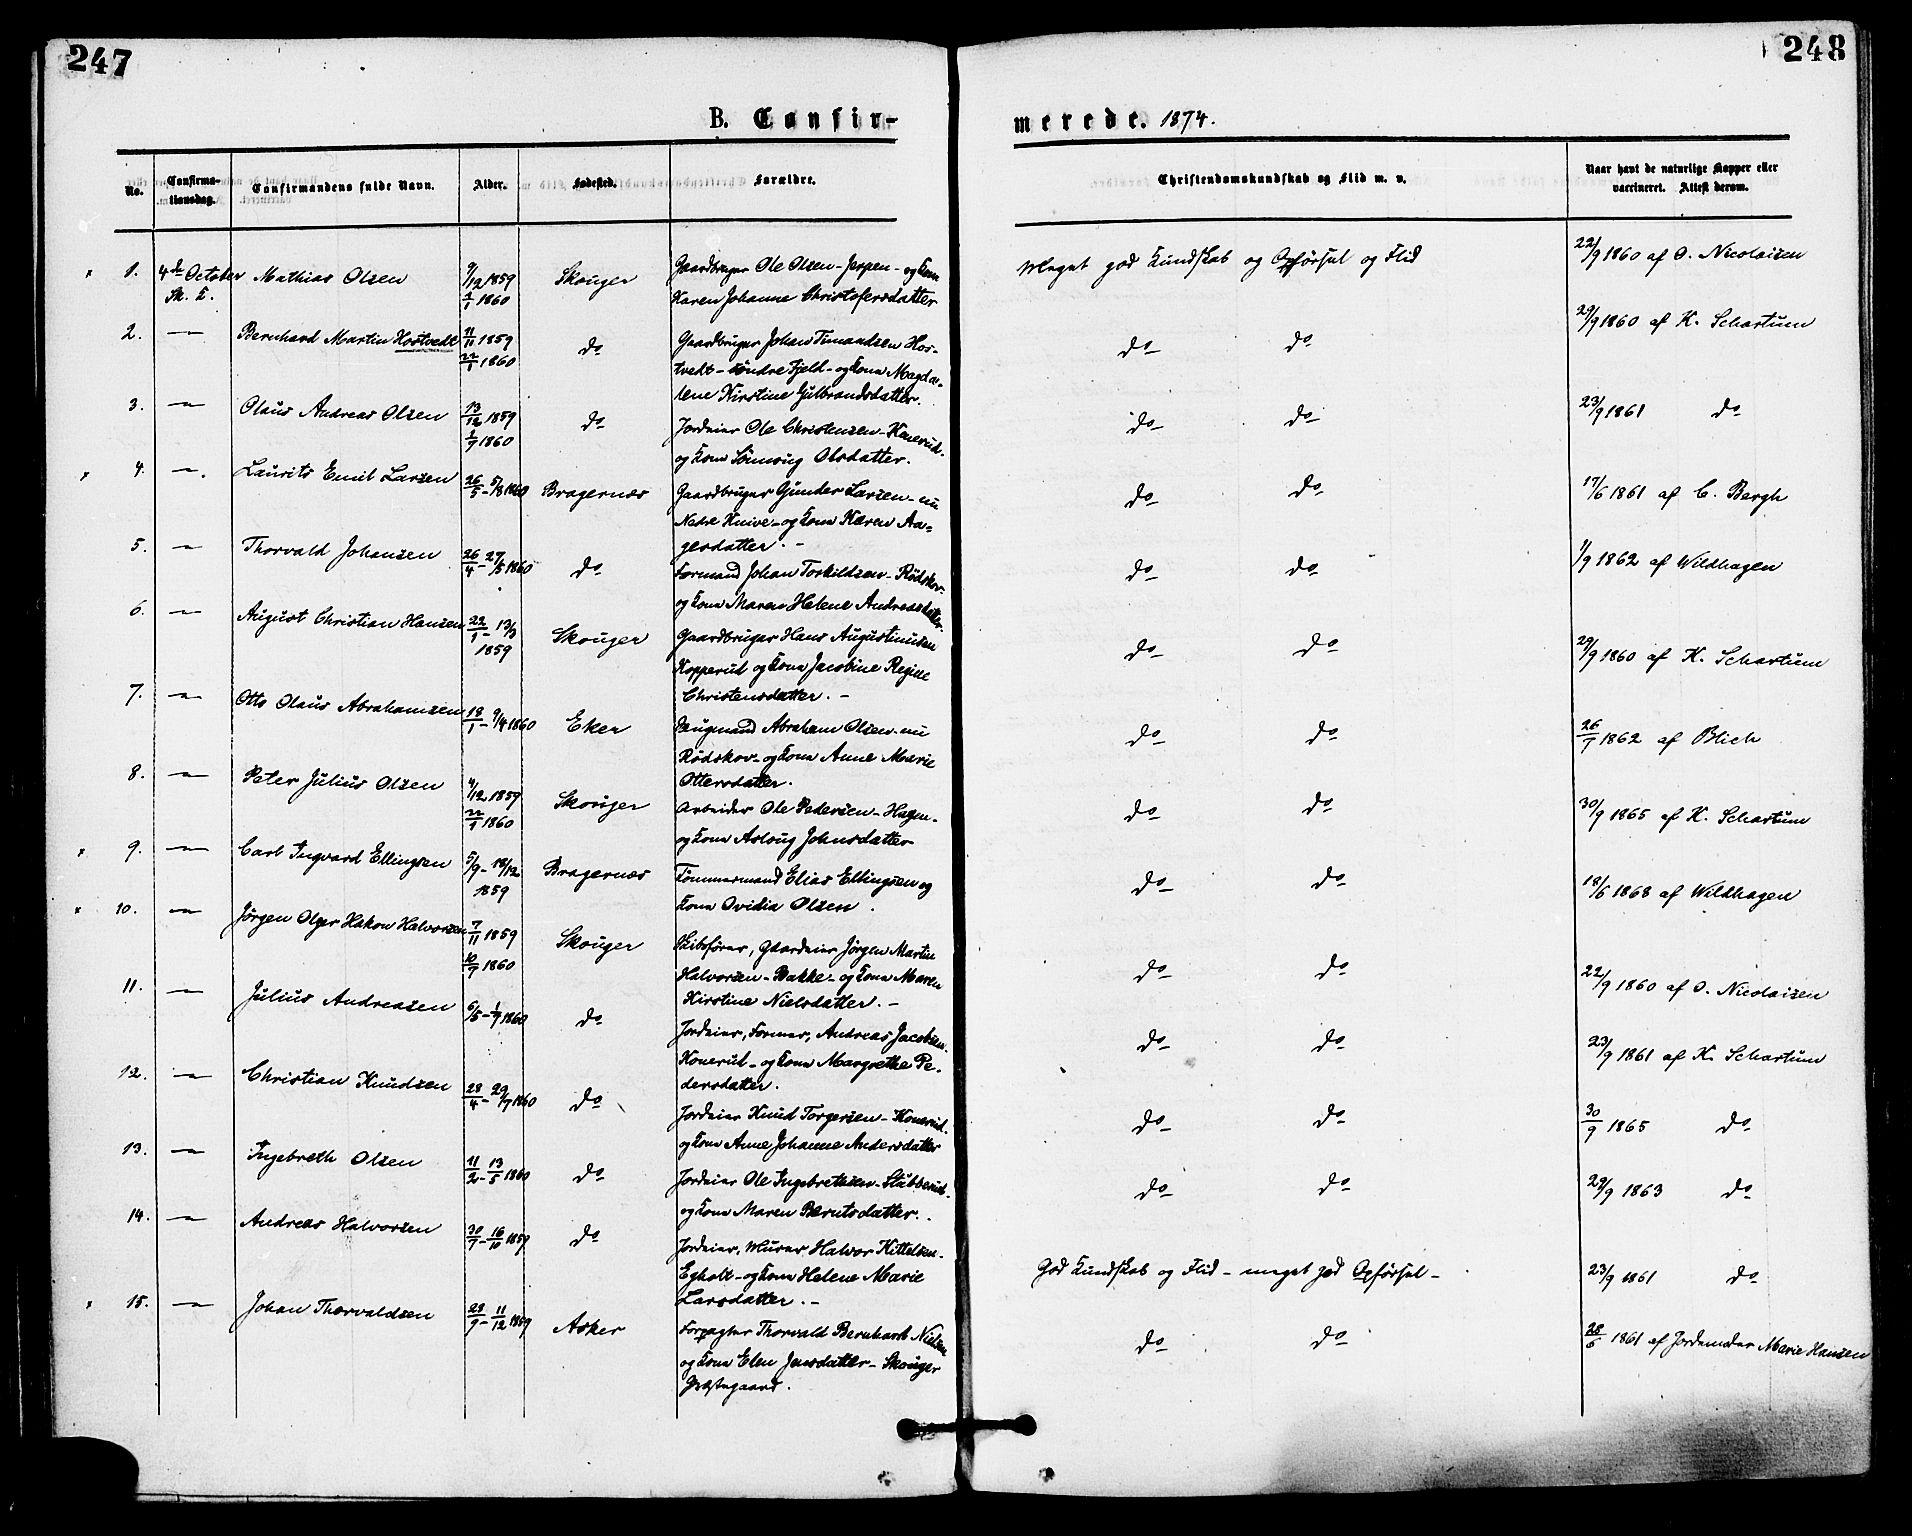 247
248
B. Confir-
merede. 1874.
No.
Confirma-
tionsdag.
Confirmandens fulde Navn.
Alder.
Fødested.
Forældre.
Christendomskundskab og Flid m. v.
Naar havt de naturlige Kopper eller
vaccineret. Attest derom.
1. 4de October Mathias Olsen 9/12 1859 Skouger Gaardbruger Ole Olsen - Jerpen - og Kona Meget god Kundskab og Opførsel og Flid 22/9 1860 af O. Nicolaisen
Sk. K. 1/1 1860 Karen Johanne Christofersdatter
2. — Bernhard Martin Hostvedt 11/11 1859 do Gaardbruger Johan Timandsen Hos- do do 29/9 1860 af K. Schartum
22/1 1860 tvedt - søndre Fjeld - og Kona Magda-
lene Kirstine Gulbrandsdatter.
3. — Olaus Andreas Olsen 13/12 1859 do Jordeier Ole Christensen - Konerud. do do 23/9 1861 do
1/7 1860 og Kona Olsdatter.
4. — Laurits Emil Larsen 26/5 - 5/8 1860 Bragernæs Gaardbruger Gunder Larsen - nu do do 17/6 1861 af C. Bergh
Nedre Knive - og Kona Karen Aa-
gesdatter. -
5. — Thorvald Johansen 26/4 - 27/5 1860 do Formand Johan Torkildsen - Rødskov- do do 1/9 1862 af Wildhagen
og Kona Maren Helene Andreasdatter.
6. — August Christian Hansen 22/1 - 13/3 Skouger Gaardbruger Hans Augustinusen do do 29/9 1860 af K. Schartum
1859 Kopperud og Kona Jacobine Regine
Christensdatter. -
7. — Otto Olaus Abrahamsen 18/1 - 9/4 1860 Eker Abraham Olsen - nu do do 26/7 1862 af Blich
Rødskov - og Kona Anne Marie
Ottersdatter.
8. — Peter Julius Olsen 4/12 1859 Skouger Arbeider Ole Pedersen - Hagen - do do 30/9 1865 af K. Schartum
22/1 1860 og Kona Aslaug Johnsdatter
9. — Carl Ingvard Ellingsen 5/9 - 18/12 Bragernæs Tømmermand Elias Ellingsen og do do 18/6 1868 af Wildhagen
1859 Kona Ovidia Olsen.
10. — Jørgen Olger Hakon Halvorsen 7/11 1859 Skouger Skibsfører, Gaardeier Jørgen Martin do do 22/9 1860 af O. Nicolaisen
Halvorsen - Bakke - og Kona Maren
Kirstine Nielsdatter. -
11. — Julius Andreasen 6/5 - 1/7 1860 do Jordeier, Former, Andreas Jacobsen - do do 23/9 1861 af K. Schartum
Konerud - og Kona Margrethe Pe-
dersdatter.
12. — Christian Knudsen 28/4 - 29/7 1860 do Jordeier Knud Torgersen - Konerud. do do 30/9 1865 do
og Kona Anne Johanne Andersdatter
13. — Ingebreth Olsen 11/2 - 13/5 1860 do Jordeier Ole Ingebretsen - Stubberud. do do 29/9 1863 do
og Kona Maren Berntsdatter.
14. — Andreas Halvorsen 30/7 - 16/10 1859 do Jordeier, Murer Halvor Kittelsen - God Kundskab og Flid - meget god Opførsel - 23/9 1861 do
Egholt - og Kona Helene Marie
Larsdatter. -
15. — Johan Thorvaldsen 29/9 - 11/12 1859 Asker Forpagter Thorvald Bernhard Nielsen do do 28/6 1861 af Jordemder Marie Hansen
og Kona Elen Jensdatter - Skouger
Præstegaard.